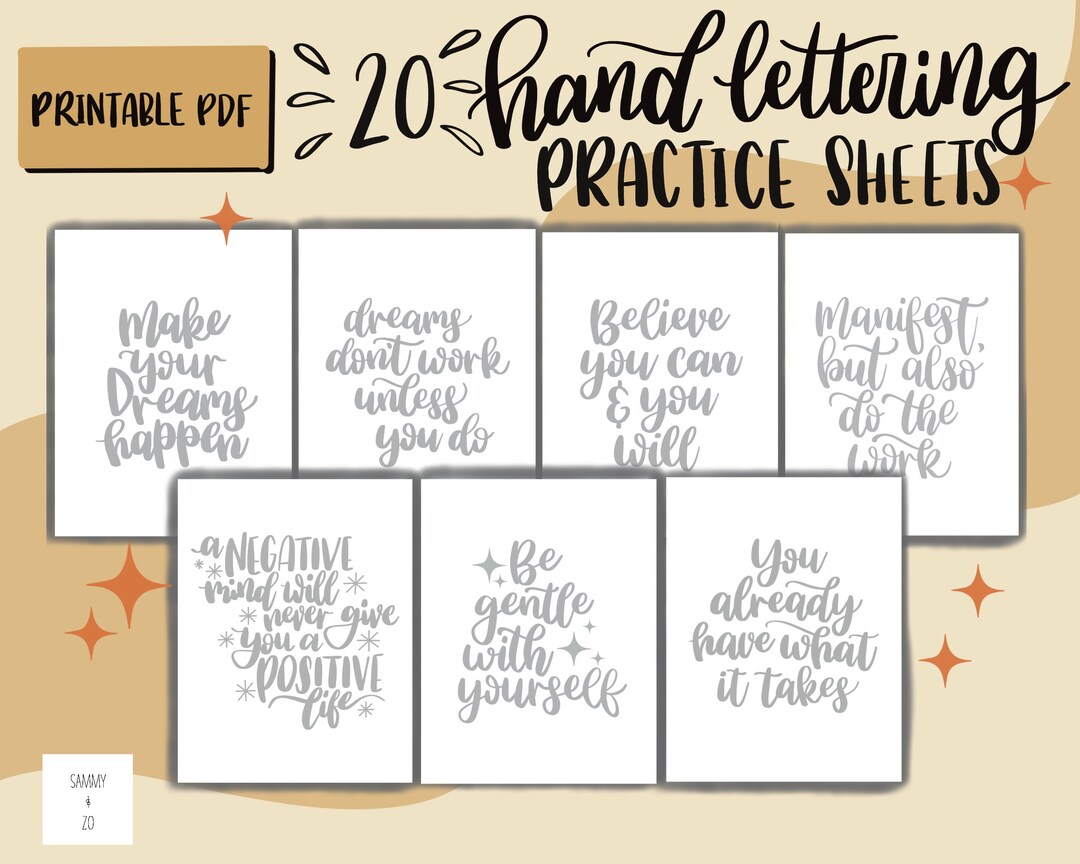 PRINTABLE PDF
20 hand lettering
PRACTICE SHEETS
Make
your
Dreams
happen
dreams
don't work
unless
you do
Believe
you can
& you
will
Manifest,
but also
do the
work
a NEGATIVE
mind will
never give
you a
POSITIVE
life
Be
gentle
with
yourself
You
already
have what
it takes
SAMMY
&
ZO